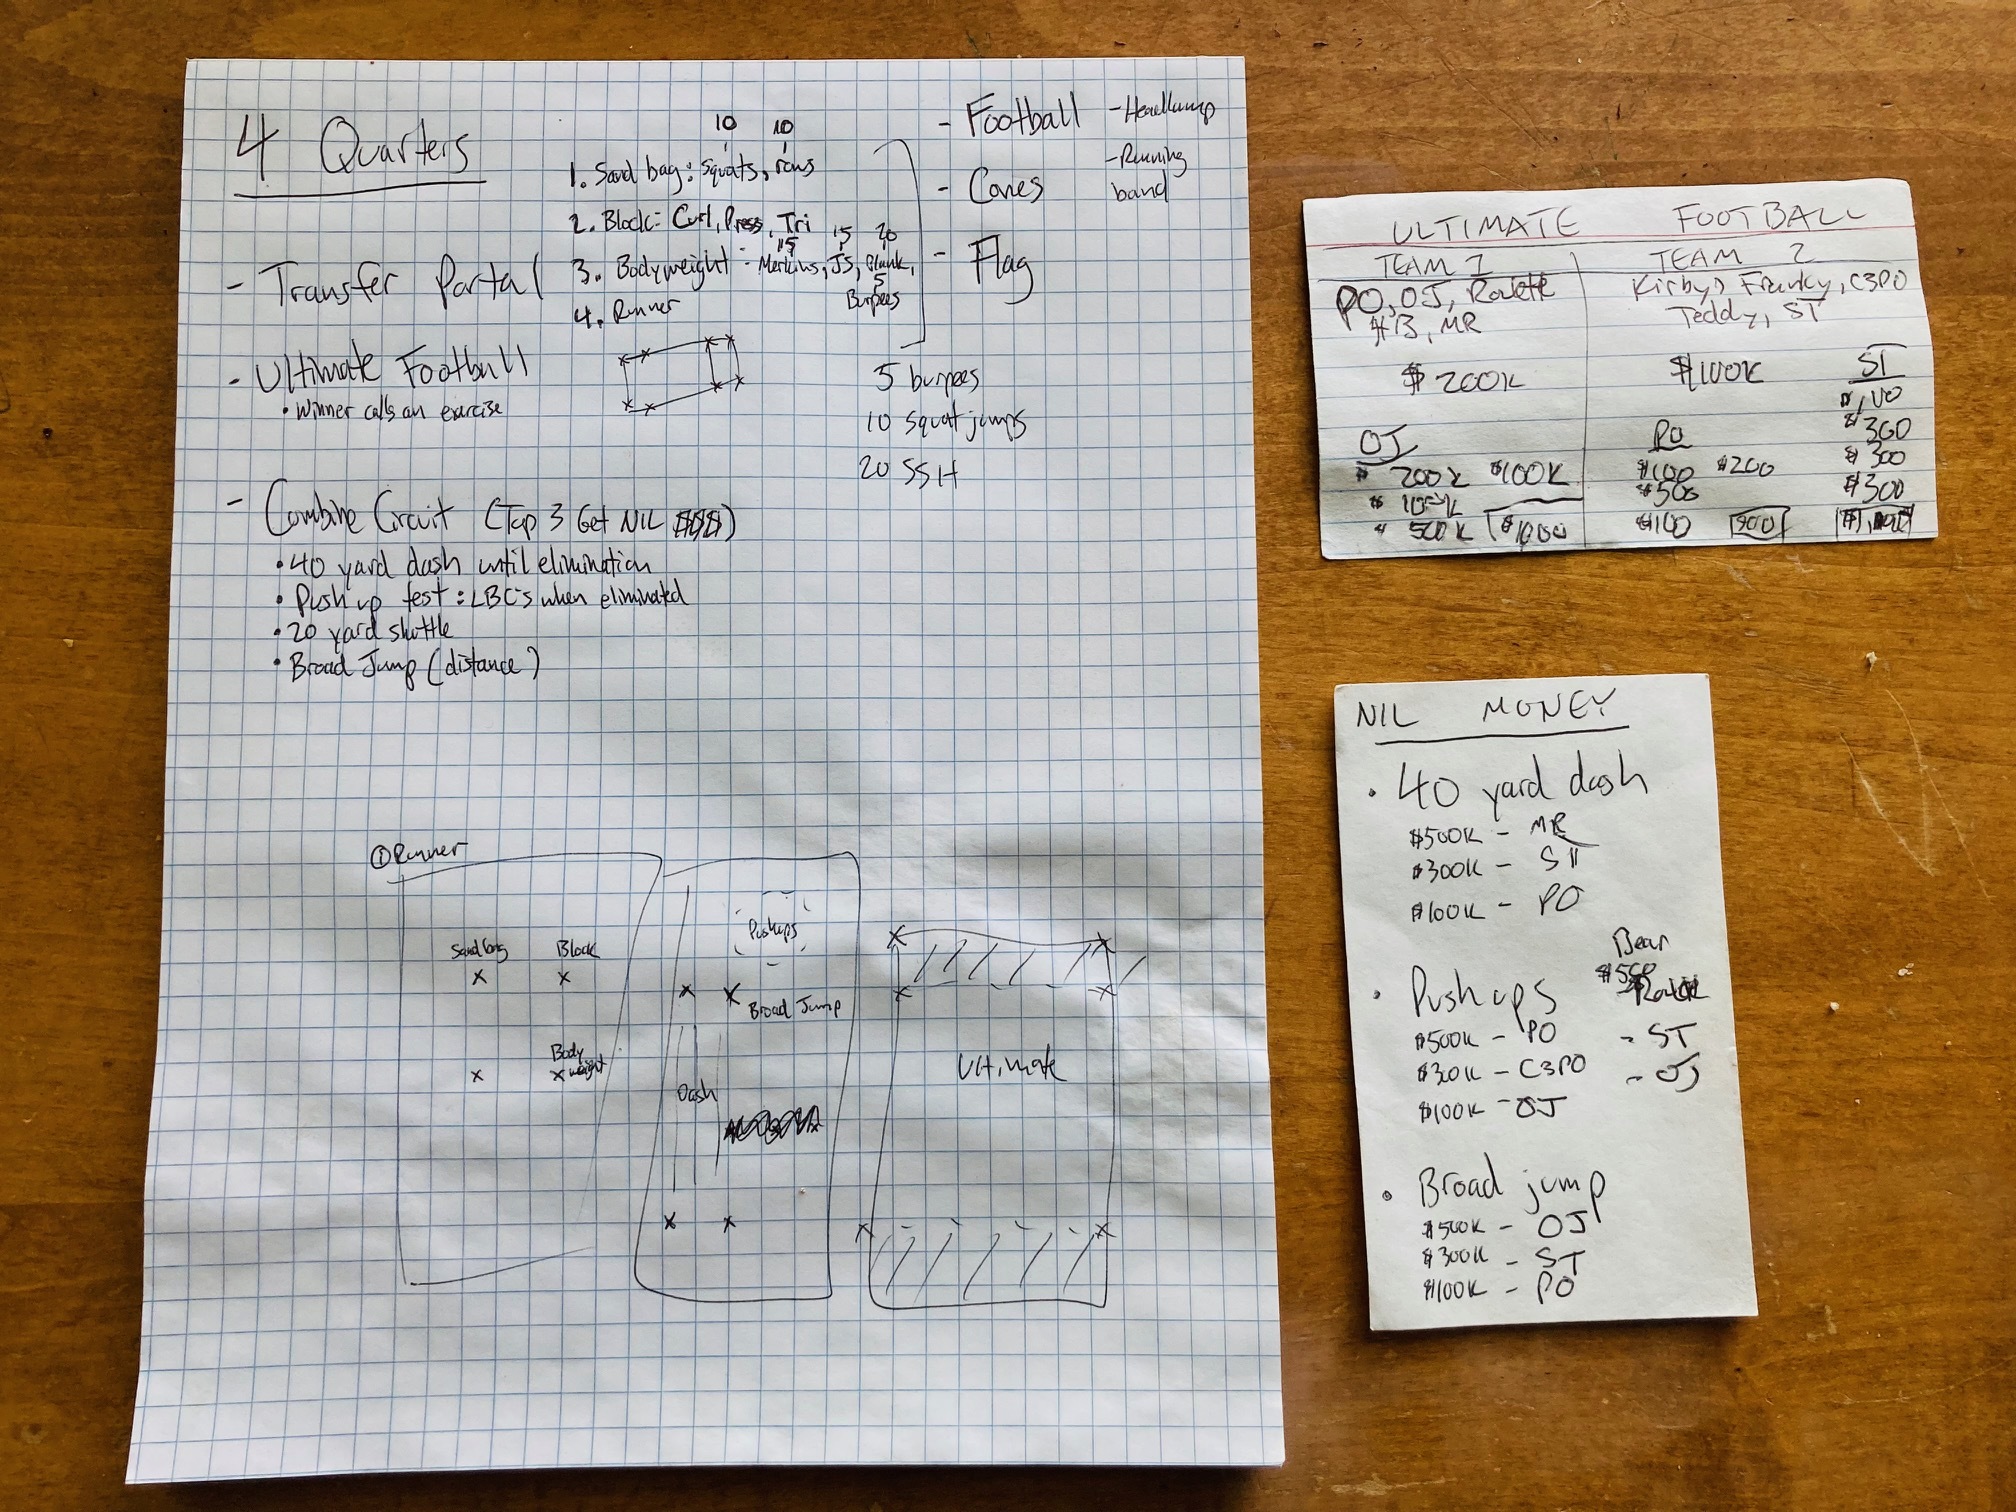 4 Quarters
10 10
1. Sand bag: squats, rows
2. Block: Curl, Press, Tri
15 15 20
3. Bodyweight - Merkins, JS, Plank,
5
Burpees
4. Runner
- Transfer Portal
- Ultimate Football
• Winner calls an exercise
- Football
- Cones
- Flag
- Headlamp
- Running
band
5 burpees
10 squat jumps
20 SSH
- Combine Circuit (Top 3 Get NIL $$$)
• 40 yard dash until elimination
• Push up test: LBC's when eliminated
• 20 yard shuttle
• Broad Jump (distance)
① Runner
Sandbag Block
Body
weight
Pushups
Broad Jump
Dash
Ultimate
ULTIMATE FOOTBALL
TEAM 1
PO, OJ, Roulette
MR
$200K
OJ
$200K $100K
$500K $1000
TEAM 2
Kirby, Franky, C3PO
Teddy, ST
$100K
PO
$100 $200
$500
$100 900
ST
$100
$300
$300
$300
NIL MONEY
• 40 yard dash
$500K - MR
$300K - ST
$100K - PO
• Push ups
$500K - PO
$300K - C3PO
$100K - OJ
Bear
$500
- ST
- OJ
• Broad jump
$500K - OJ
$300K - ST
$100K - PO